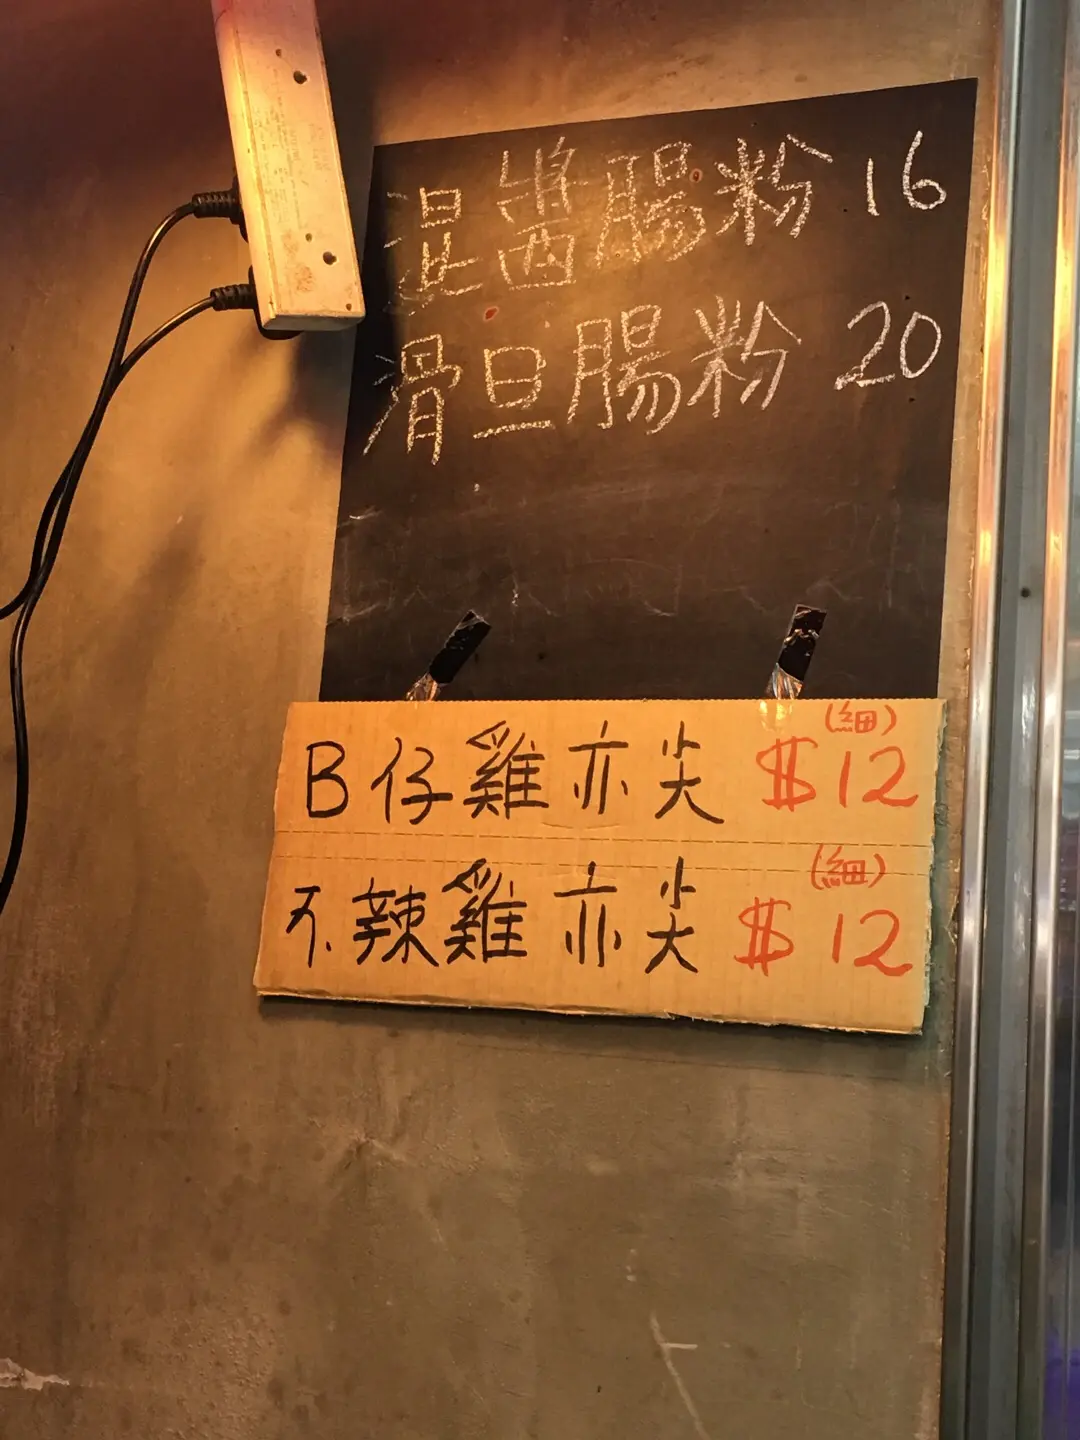 混醬腸粉 16
滑旦腸粉 20
(細)
B仔雞亦尖 $12
(細)
不辣雞亦尖 $12